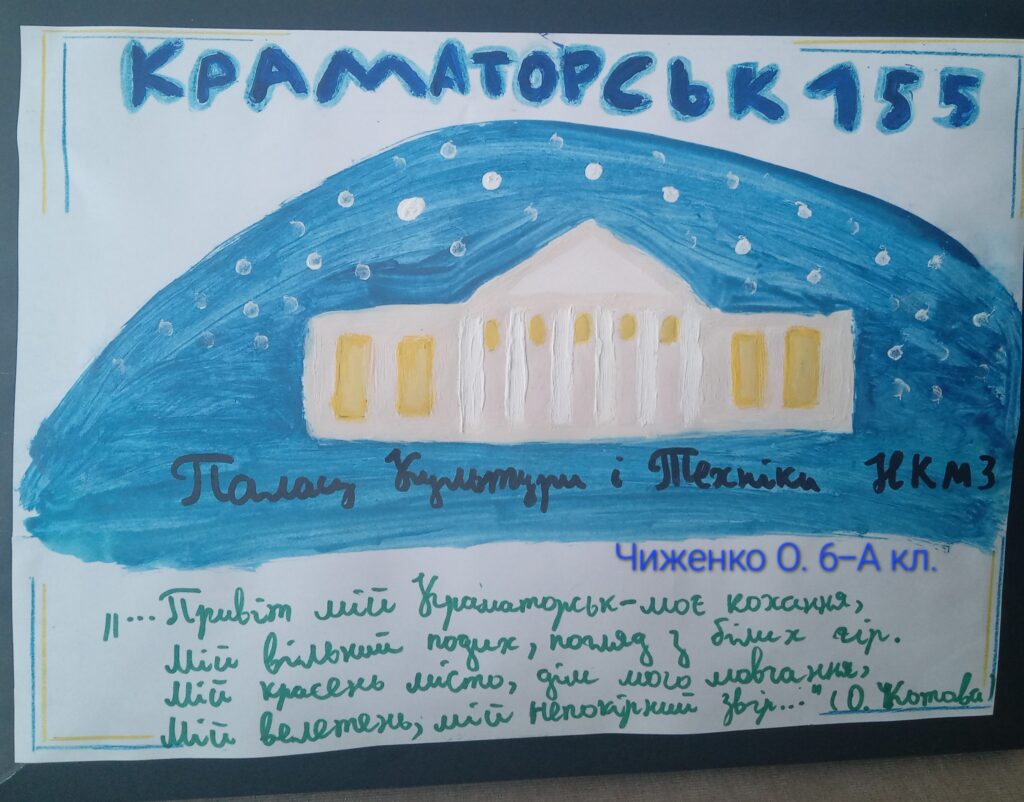 КРАМАТОРСЬК 155
Палац Культури і Техніки НКМЗ
Чиженко О. 6-А кл.
„...Привіт мій Краматорськ-моє кохання,
Мій вільний подих, погляд з білих гір.
Мій красень місто, дім мого мовчання,
Мій велетень, мій непокірний звір..." (О. Котова)